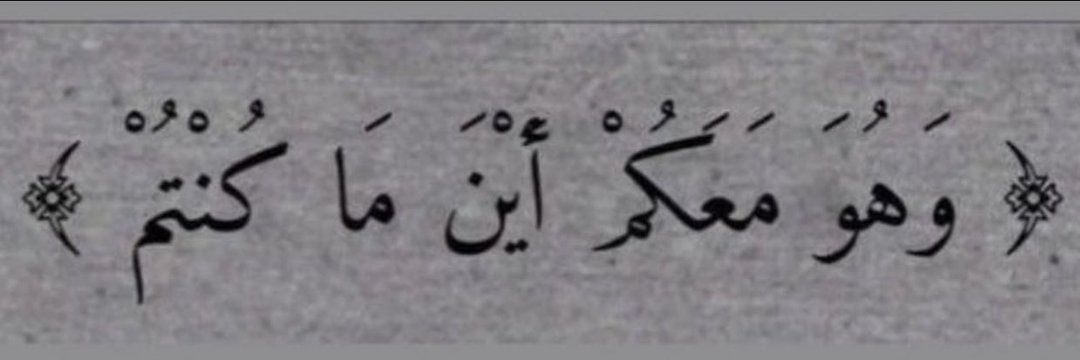 ﴿ وَهُوَ مَعَكُمْ أَيْنَ مَا كُنْتُمْ ﴾